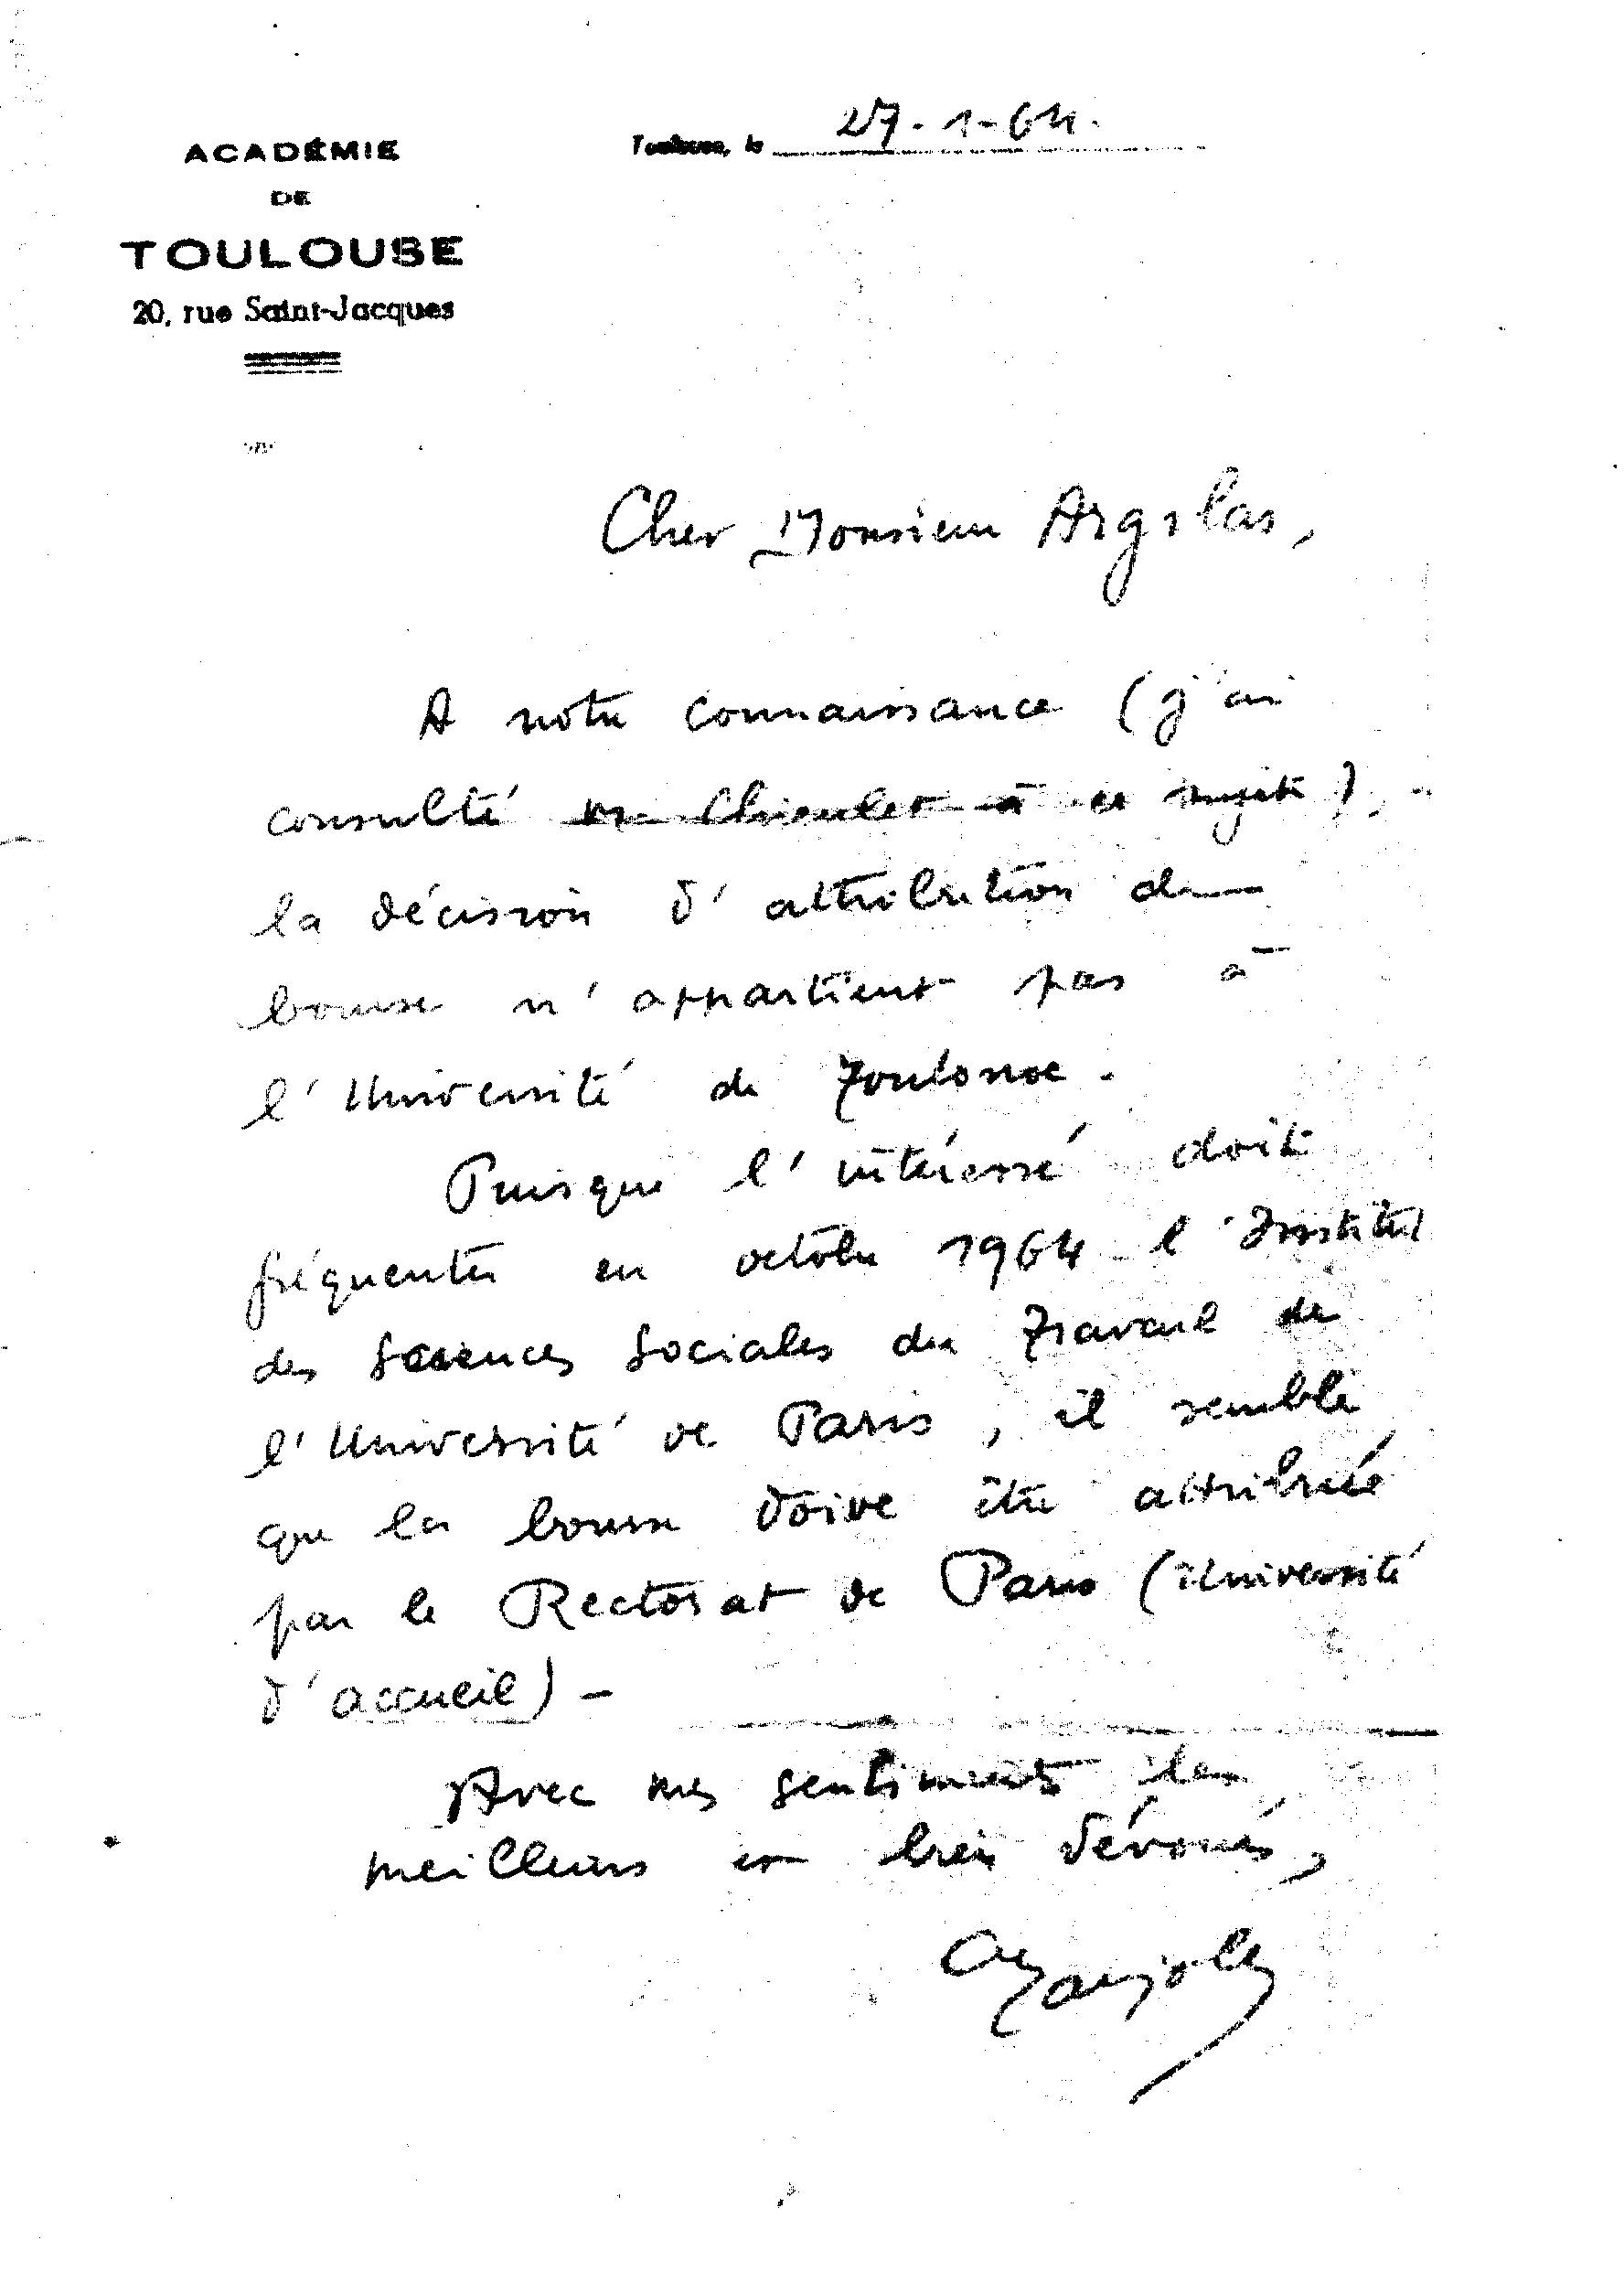 ACADÉMIE
DE
TOULOUSE
20, rue Saint-Jacques
Toulouse, le 27-1-64.
Cher Monsieur Argilas,
A notre connaissance (j'ai
consulté à ce sujet),
la décision d'attribution de
bourse n'appartient pas à
l'Université de Toulouse.
Puisque l'intéressé doit
fréquenter en octobre 1964 l'Institut
des Sciences Sociales du Travail de
l'Université de Paris, il semble
que la bourse doive être attribuée
par le Rectorat de Paris (Université
d'accueil) -
Avec mes sentiments les
meilleurs et bien dévoués,